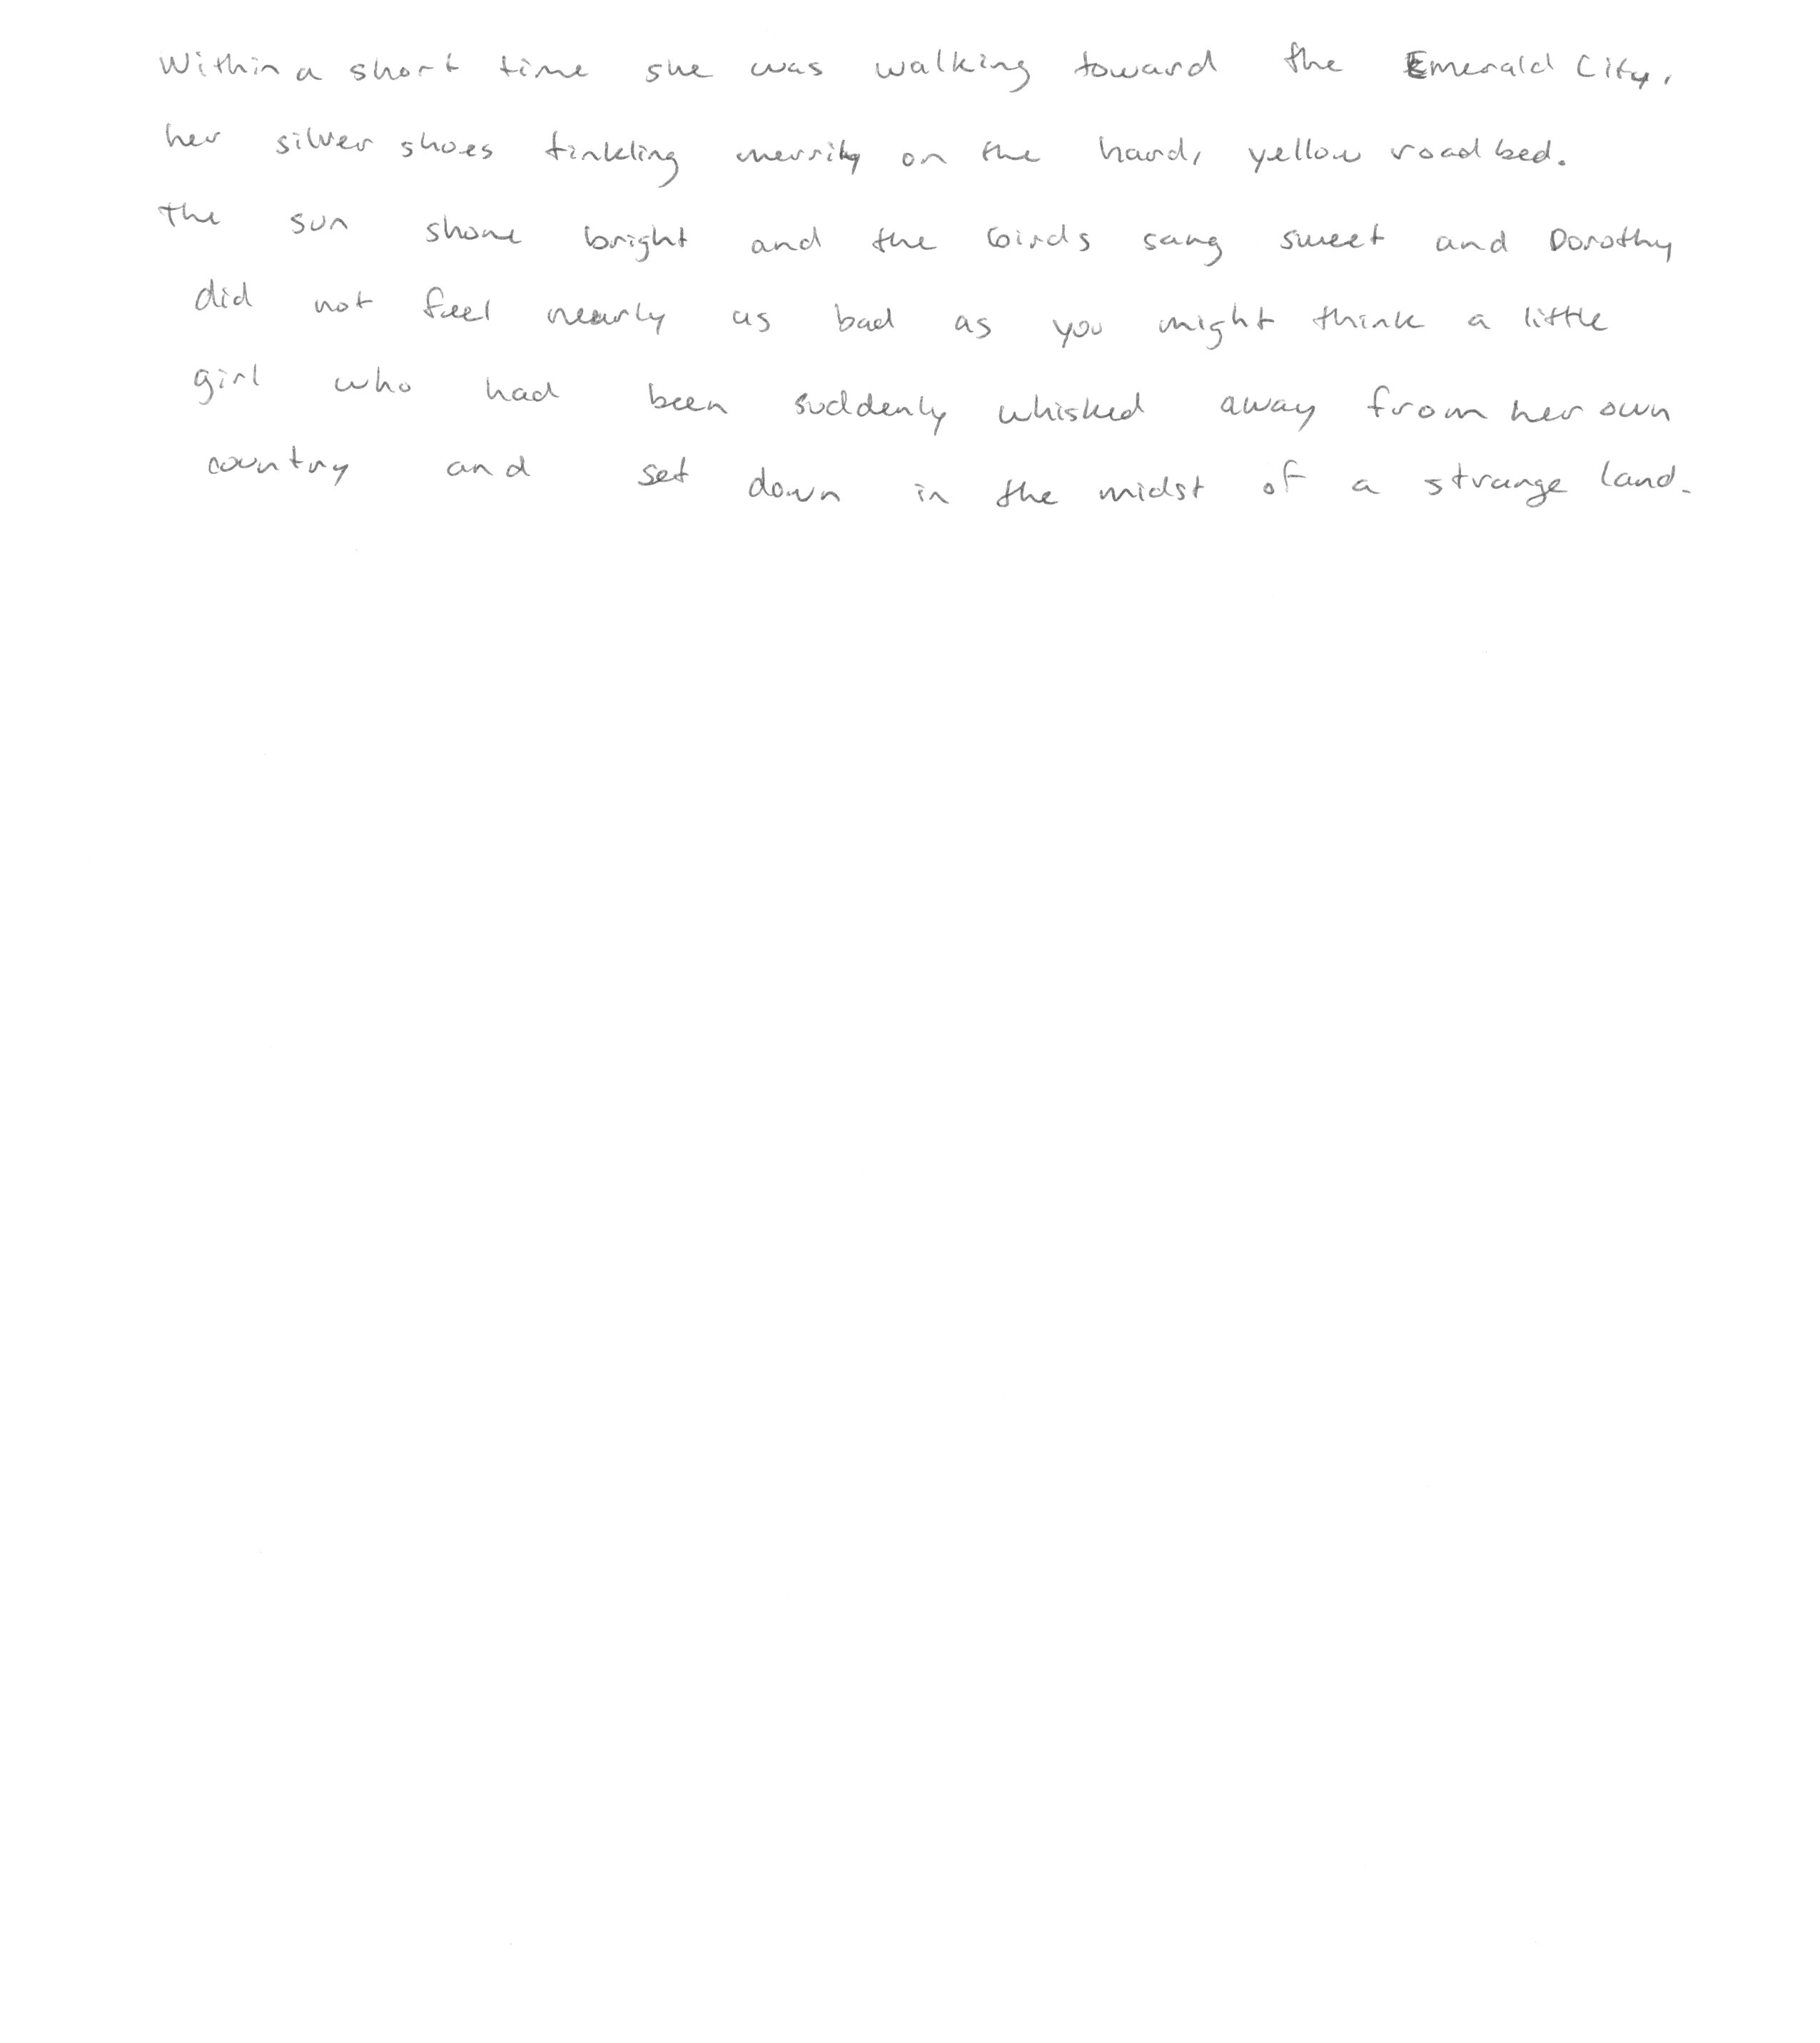 Within a short time she was walking toward the Emerald City,
her silver shoes tinkling merrily on the hard, yellow roadbed.
The sun shone bright and the birds sang sweet and Dorothy
did not feel nearly as bad as you might think a little
girl who had been suddenly whisked away from her own
country and set down in the midst of a strange land.